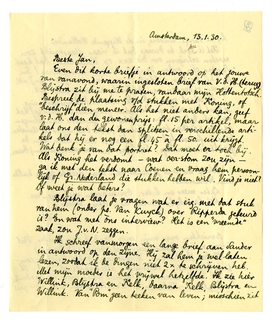 Amsterdam, 13.1.30.
Beste Jan,
Even dit korte briefje in antwoord op het jouwe
van vanavond, waarin ingesloten brief van V. d. H. (terug).
Blijstra zit bij me te praten, vanbaar mijn Hottentotsch.
Bespreek de plaatsing v/d stukken met Koning, of
beschrijf dien meneer. Als het niet anders kan, geef
v. d. H. dan de gewone prijs: fl. 15 per artikel, maar
laat ons den tekst dan splitsen in verschillende artikels
dat hij er nog een fl. 45 à fl. 50 uit krijgt.
Wat denk je van dat portret? Wat moet er voor bij.
Als Koning het verdomt — wat oerstom zou zijn —
ga ik met den tekst naar Coenen en vraag hem persoonlijk
of Gr. Nederland die stukken hebben wil. Vind je niet?
Of weet je wat beters?
Blijstra laat je vragen wat er eig. met dat stuk
van hem (onder ps. Van Kuyck) over Ripperda gebeurd
is? En wat met ons interview? Het is een "vreemde"
zaak, zou J. N. zeggen.
Ik schreef vanmorgen een lange brief aan Sander
in antwoord op den zijne. Hij zal hem je wel laten
lezen, zoodat ik die dingen niet 2 x te schrijven heb.
Met mijn moeder is het vrijwel hetzelfde. Ik zie hier
Willink, Blijstra en Kelk, daarna Kelk, Blijstra en
Willink. Van Pom geen teeken van leven; misschien zit